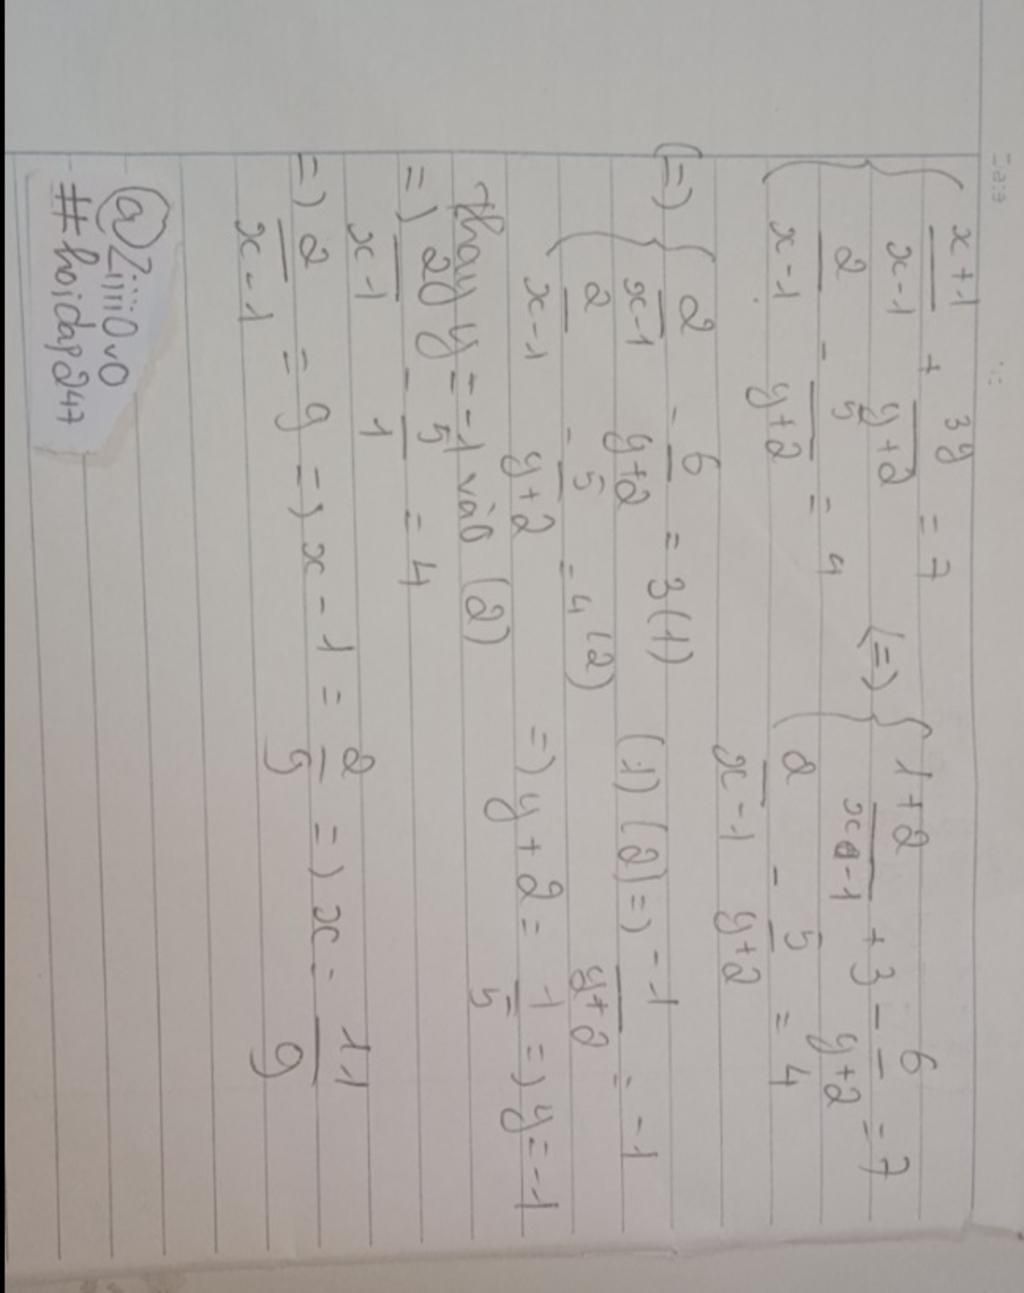 { x+1/x-1 + 3y/y+2 = 7
2/x-1 - 5/y+2 = 4
(=) { 1+2/x-1 + 3 - 6/y+2 = 7
2/x-1 - 5/y+2 = 4
(=) { 2/x-1 - 6/y+2 = 3 (1)
2/x-1 - 5/y+2 = 4 (2)
(1) (2) =) -1/y+2 = -1
=) y+2 = 1 =) y = -1
Thay y = -1 vào (2)
=) 2/x-1 - 5/1 = 4
=) 2/x-1 = 9 =) x-1 = 2/9 =) x = 11/9
@Ziiii0v0
#hoidap247